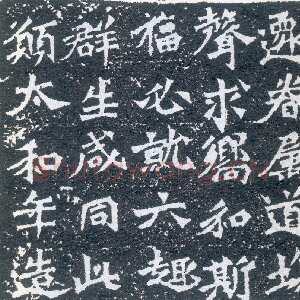 遷眷屬道場
聲求嚮和斯
福必就六趣
群生咸同此
願太和年造